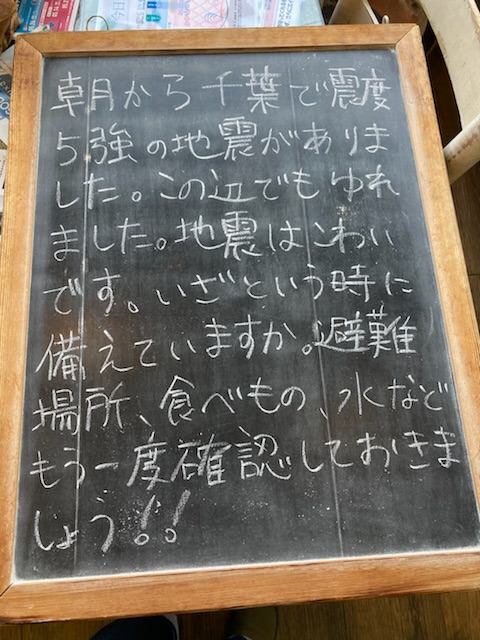 朝から千葉で震度
5強の地震がありま
した。この辺でもゆれ
ました。地震はこわい
です。いざという時に
備えていますか。避難
場所、食べもの、水など
もう一度確認しておきま
しょう!!